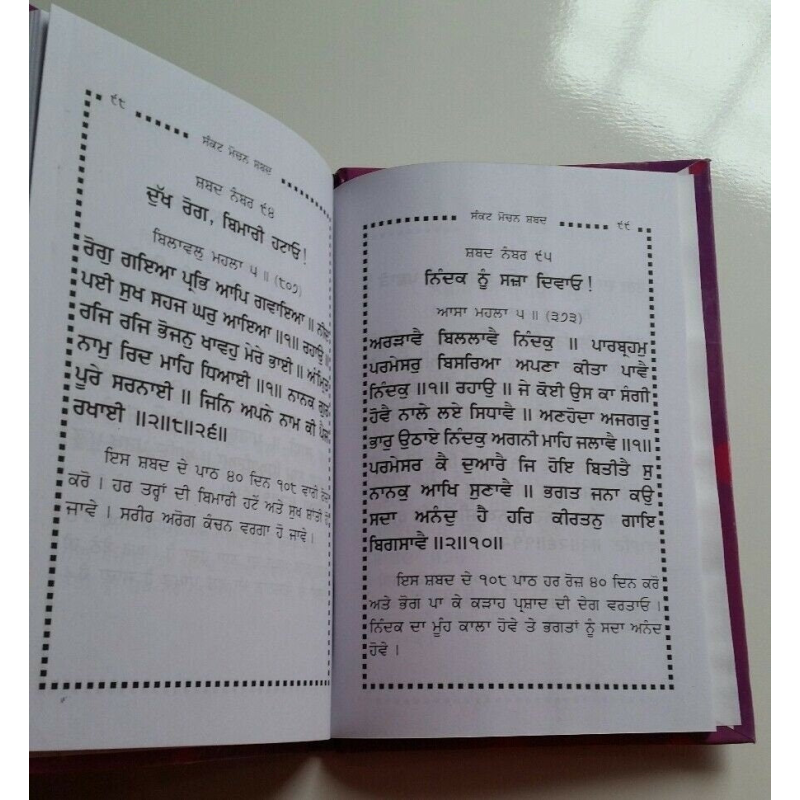 ੯੮
ਸੰਕਟ ਮੋਚਨ ਸ਼ਬਦ
ਸ਼ਬਦ ਨੰਬਰ ੯੪
ਦੁੱਖ ਰੋਗ, ਬਿਮਾਰੀ ਹਟਾਓ!
ਬਿਲਾਵਲੁ ਮਹਲਾ ੫ ॥ (੮੦੭)
ਰੋਗੁ ਗਇਆ ਪ੍ਰਭਿ ਆਪਿ ਗਵਾਇਆ ॥
ਪਈ ਸੁਖ ਸਹਜ ਘਰੁ ਆਇਆ ॥੧॥ ਰਹਾਉ ॥
ਰਜਿ ਰਜਿ ਭੋਜਨੁ ਖਾਵਹੁ ਮੇਰੇ ਭਾਈ ॥ ਅੰਮ੍ਰਿਤੁ
ਨਾਮੁ ਰਿਦ ਮਾਹਿ ਧਿਆਈ ॥੧॥ ਨਾਨਕ ਗੁਰ
ਪੂਰੇ ਸਰਨਾਈ ॥ ਜਿਨਿ ਅਪਨੇ ਨਾਮ ਕੀ ਪੈਜ
ਰਖਾਈ ॥੨॥੮॥੨੬॥
ਇਸ ਸ਼ਬਦ ਦੇ ਪਾਠ ੪੦ ਦਿਨ ੧੦੮ ਵਾਰੀ ਰੋਜ਼
ਕਰੋ । ਹਰ ਤਰ੍ਹਾਂ ਦੀ ਬਿਮਾਰੀ ਹਟੇ ਅਤੇ ਸੁਖ ਸ਼ਾਂਤੀ ਹੋ
ਜਾਵੇ । ਸਰੀਰ ਅਰੋਗ ਕੰਚਨ ਵਰਗਾ ਹੋ ਜਾਵੇ ।
ਸੰਕਟ ਮੋਚਨ ਸ਼ਬਦ
੯੯
ਸ਼ਬਦ ਨੰਬਰ ੯੫
ਨਿੰਦਕ ਨੂੰ ਸਜ਼ਾ ਦਿਵਾਓ!
ਆਸਾ ਮਹਲਾ ੫ ॥ (੩੭੩)
ਅਰੜਾਵੈ ਬਿਲਲਾਵੈ ਨਿੰਦਕੁ ॥ ਪਾਰਬ੍ਰਹਮੁ
ਪਰਮੇਸਰੁ ਬਿਸਰਿਆ ਅਪਣਾ ਕੀਤਾ ਪਾਵੈ
ਨਿੰਦਕੁ ॥੧॥ ਰਹਾਉ ॥ ਜੇ ਕੋਈ ਉਸ ਕਾ ਸੰਗੀ
ਹੋਵੈ ਨਾਲੇ ਲਏ ਸਿਧਾਵੈ ॥ ਅਣਹੋਦਾ ਅਜਗਰੁ
ਭਾਰੁ ਉਠਾਏ ਨਿੰਦਕੁ ਅਗਨੀ ਮਾਹਿ ਜਲਾਵੈ ॥੧॥
ਪਰਮੇਸਰ ਕੈ ਦੁਆਰੈ ਜਿ ਹੋਇ ਬਿਤੀਤੈ ਸੁ
ਨਾਨਕੁ ਆਖਿ ਸੁਣਾਵੈ ॥ ਭਗਤ ਜਨਾ ਕਉ
ਸਦਾ ਅਨੰਦੁ ਹੈ ਹਰਿ ਕੀਰਤਨੁ ਗਾਇ
ਬਿਗਸਾਵੈ ॥੨॥੧੦॥
ਇਸ ਸ਼ਬਦ ਦੇ ੧੦੮ ਪਾਠ ਹਰ ਰੋਜ਼ ੪੦ ਦਿਨ ਕਰੋ
ਅਤੇ ਭੋਗ ਪਾ ਕੇ ਕੜਾਹ ਪ੍ਰਸ਼ਾਦ ਦੀ ਦੇਗ ਵਰਤਾਓ ।
ਨਿੰਦਕ ਦਾ ਮੂੰਹ ਕਾਲਾ ਹੋਵੇ ਤੇ ਭਗਤਾਂ ਨੂੰ ਸਦਾ ਅਨੰਦ
ਹੋਵੇ ।